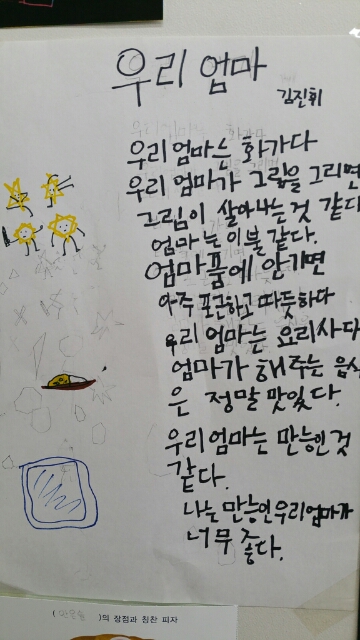 우리 엄마
김진휘
우리 엄마는 화가다
우리 엄마가 그림을 그리면
그림이 살아나는것 같다
엄마는 이불 같다.
엄마품에 안기면
아주 포근하고 따듯하다
우리 엄마는 요리사다
엄마가 해주는 음식
은 정말 맛있다.
우리 엄마는 만능인 것
같다.
나는 만능인 우리엄마가
너무 좋다.
)의 장점과 칭찬 피자